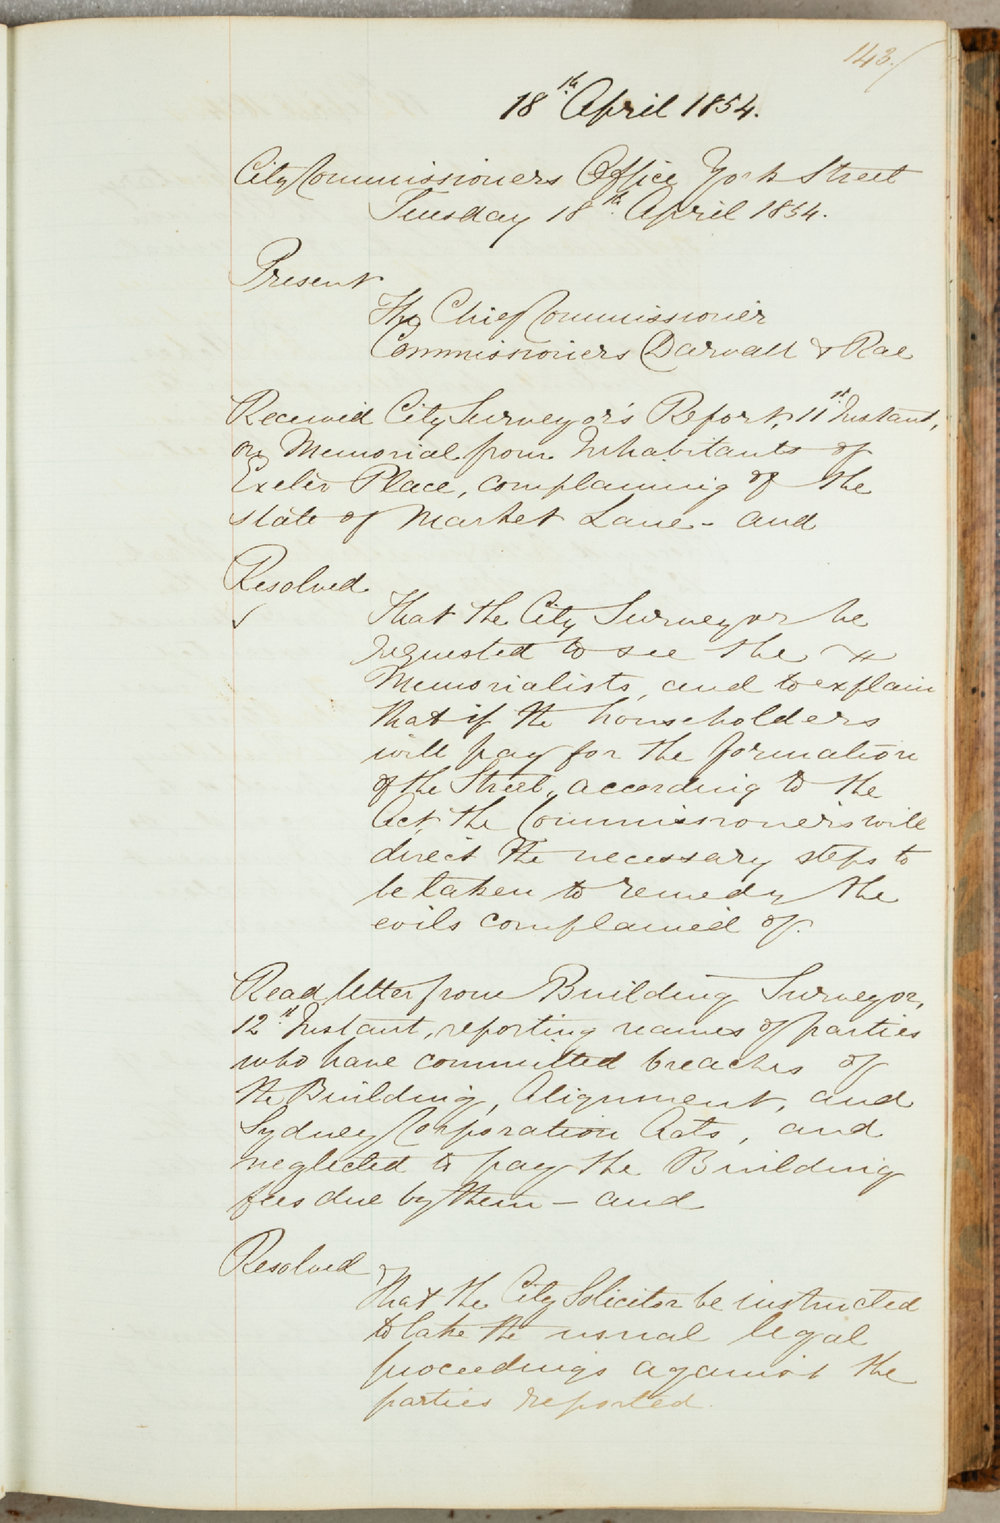 143.
18th April 1854.
City Commissioners Office York Street
Tuesday 18th April 1854.
Present
The Chief Commissioner
Commissioners Darvall & Rae
Received City Surveyor's Report, 11th Instant,
on Memorial from Inhabitants of
Exeter Place, complaining of the
state of Market Lane - and
Resolved
That the City Surveyor be
requested to see the
Memorialists, and to explain
that if the householders
will pay for the formation
of the Street, according to the
Act, the Commissioners will
direct the necessary steps to
be taken to remedy the
evils complained of.
Read letter from Building Surveyor,
12th Instant, reporting names of parties
who have committed breaches of
the Building, Alignment, and
Sydney Corporation Acts, and
neglected to pay the Building
fees due by them - and
Resolved
That the City Solicitor be instructed
to take the usual legal
proceedings against the
parties reported.